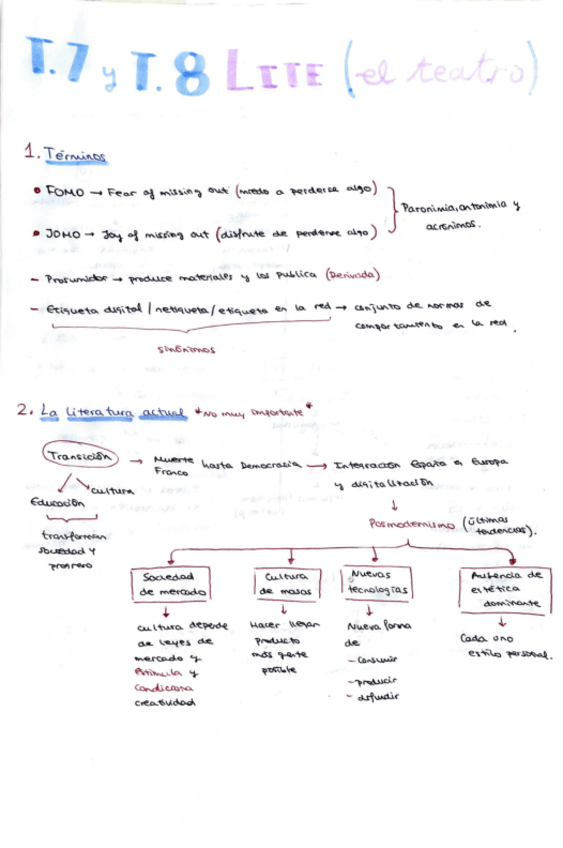 T.7 y T.8 LITE (el teatro)
1. Términos
• FOMO → Fear of missing out (miedo a perderse algo)
• JOMO → Joy of missing out (disfrute de perderse algo)
Paronimia, antonimia y
acrónimos.
- Prosumidor → produce materiales y los publica (Derivada)
- Etiqueta digital / netiqueta / etiqueta en la red → conjunto de normas de
comportamiento en la red.
sinónimos
2. La literatura actual *No muy importante*
Transición → Muerte Franco hasta Democracia → Integración España en Europa
y digitalización
cultura
Educación
transforman
sociedad y
Posmodernismo (últimas
tendencias).
Sociedad
de mercado
cultura depende
de leyes de
mercado y
estimula y
condiciona
creatividad
Cultura
de masas
Hacer llegar
producto
más gente
posible
Nuevas
tecnologías
Nueva forma
de
- consumir
- producir
- difundir
Ausencia de
estética
dominante
Cada uno
estilo personal.